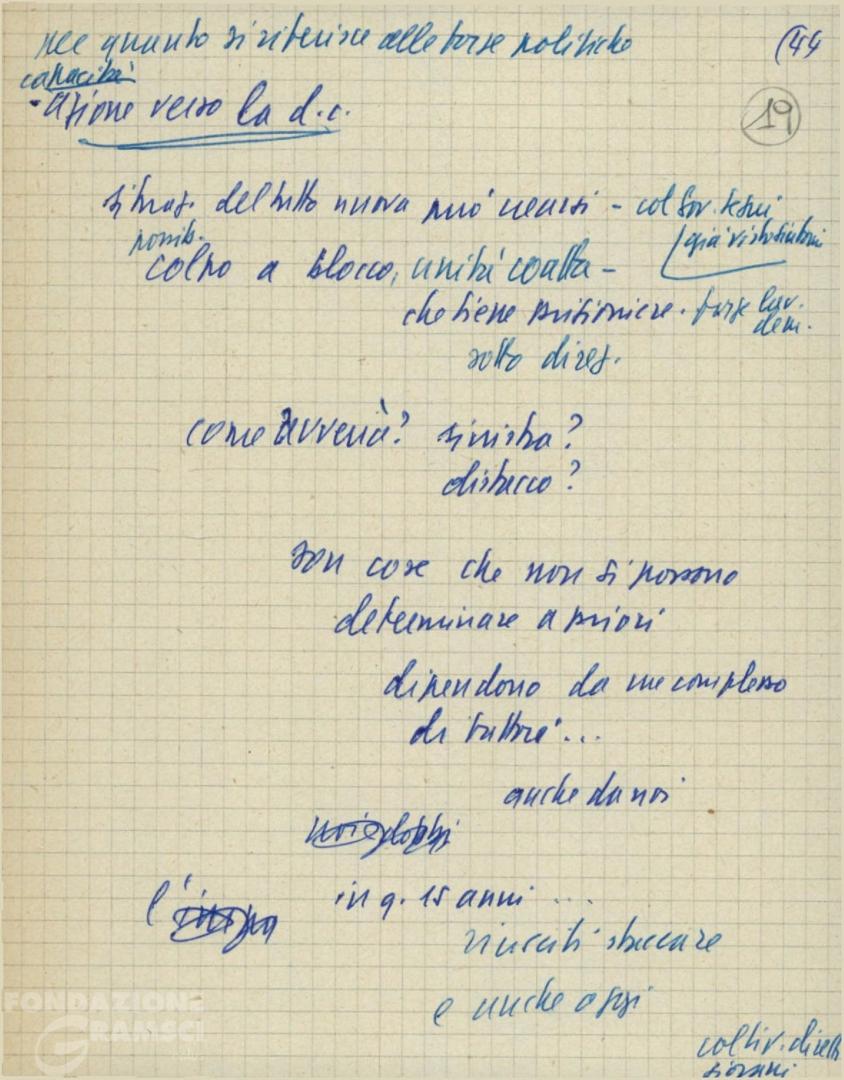 per quanto si riferisce alle forze politiche
(44
capacità
- azione verso la d.c.
19
situaz. del tutto nuova può crearsi - col gov.
già visto sintomi
possib.
colpo a blocco, unità coatta -
che tiene prigioniere. forze lav.
dem.
sotto direz.
come avverrà? sinistra?
distacco?
son cose che non si possono
determinare a priori
dipendono da un complesso
di fattori...
anche da noi
in q. 15 anni ...
l'
riusciti staccare
e anche oggi
coltiv. diretti
giovani
FONDAZIONE
GRAMSCI